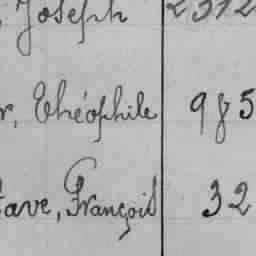 Joseph 2312
r, Théophile 985
tave, François 32